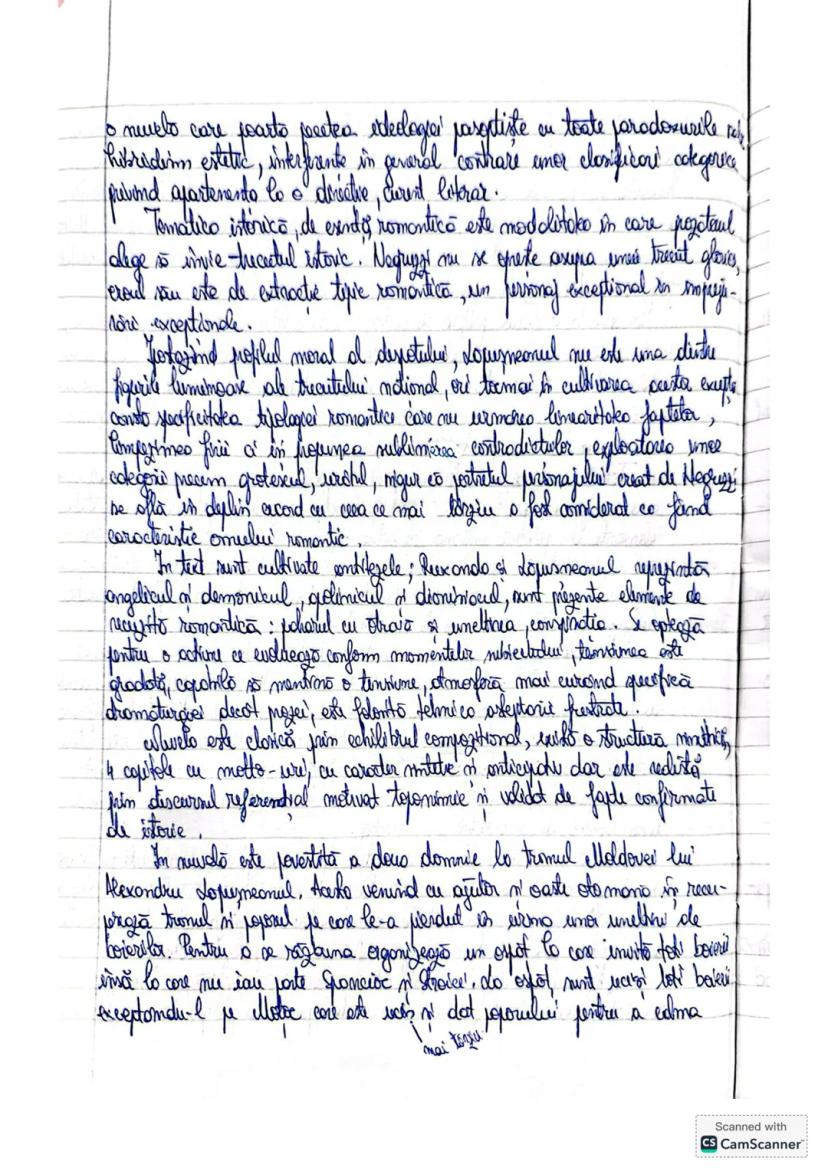 o nuvelă care poartă pecetea ideologiei pașoptiste cu toate paradoxurile
hibridism estetic, interferențe în general contrare unor clasificări categorice
privind apartenența la o direcție, curent literar.
Tematica istorică, de esență romantică este modalitatea în care prozatorul
alege să învie trecutul istoric. Negruzzi nu se oprește asupra unui trecut glorios,
eroul său este de extracție tipic romantică, un personaj excepțional în împreju-
rări excepționale.
profilul moral al despotului, Lopușneanul nu este una dintre
figurile luminoase ale trecutului național, ori tocmai în cultivarea acestei excepții
constă specificitatea tipologiei romantice care nu urmărea linearitatea faptelor,
limpezimea firii ci în propunea sublimarea contradicțiilor, exploatarea unor
categorii precum grotescul, urâtul, sigur că portretul personajului creat de Negruzzi
se află în deplin acord cu ceea ce mai târziu a fost considerat ca fiind
caracteristic omului romantic.
În text sunt cultivate antitezele; Ruxanda și Lopușneanul reprezintă
angelicul și demonicul, apolinicul și dionisiacul, sunt prezente elemente de
recuzită romantică: paharul cu otravă și uneltirea, conspirația. Se optează
pentru o acțiune ce evoluează conform momentelor subiectului, tensiunea este
gradată, capabilă să mențină o tensiune, atmosferă mai curând specifică
dramaturgiei decât prozei, este folosită tehnica așteptării frustrate.
Nuvela este clasică prin echilibrul compozițional, există o structură simetrică,
4 capitole cu motto-uri, cu caracter sintetic și anticipativ dar este realistă
prin discursul referențial motivat toponimic și validat de fapte confirmate
de istorie.
În nuvelă este povestită a doua domnie la tronul Moldovei lui
Alexandru Lopușneanul. Acesta venind cu ajutor și oaste otomană își recu-
perează tronul și poporul pe care le-a pierdut în urma unor uneltiri ale
boierilor. Pentru a se răzbuna organizează un ospăț la care invită toți boierii
însă la care nu iau parte Spancioc și Stroici. La ospăț, sunt uciși toți boierii
exceptându-l pe Moțoc care este ucis și dat poporului pentru a calma
mai târziu
Scanned with
CS CamScanner